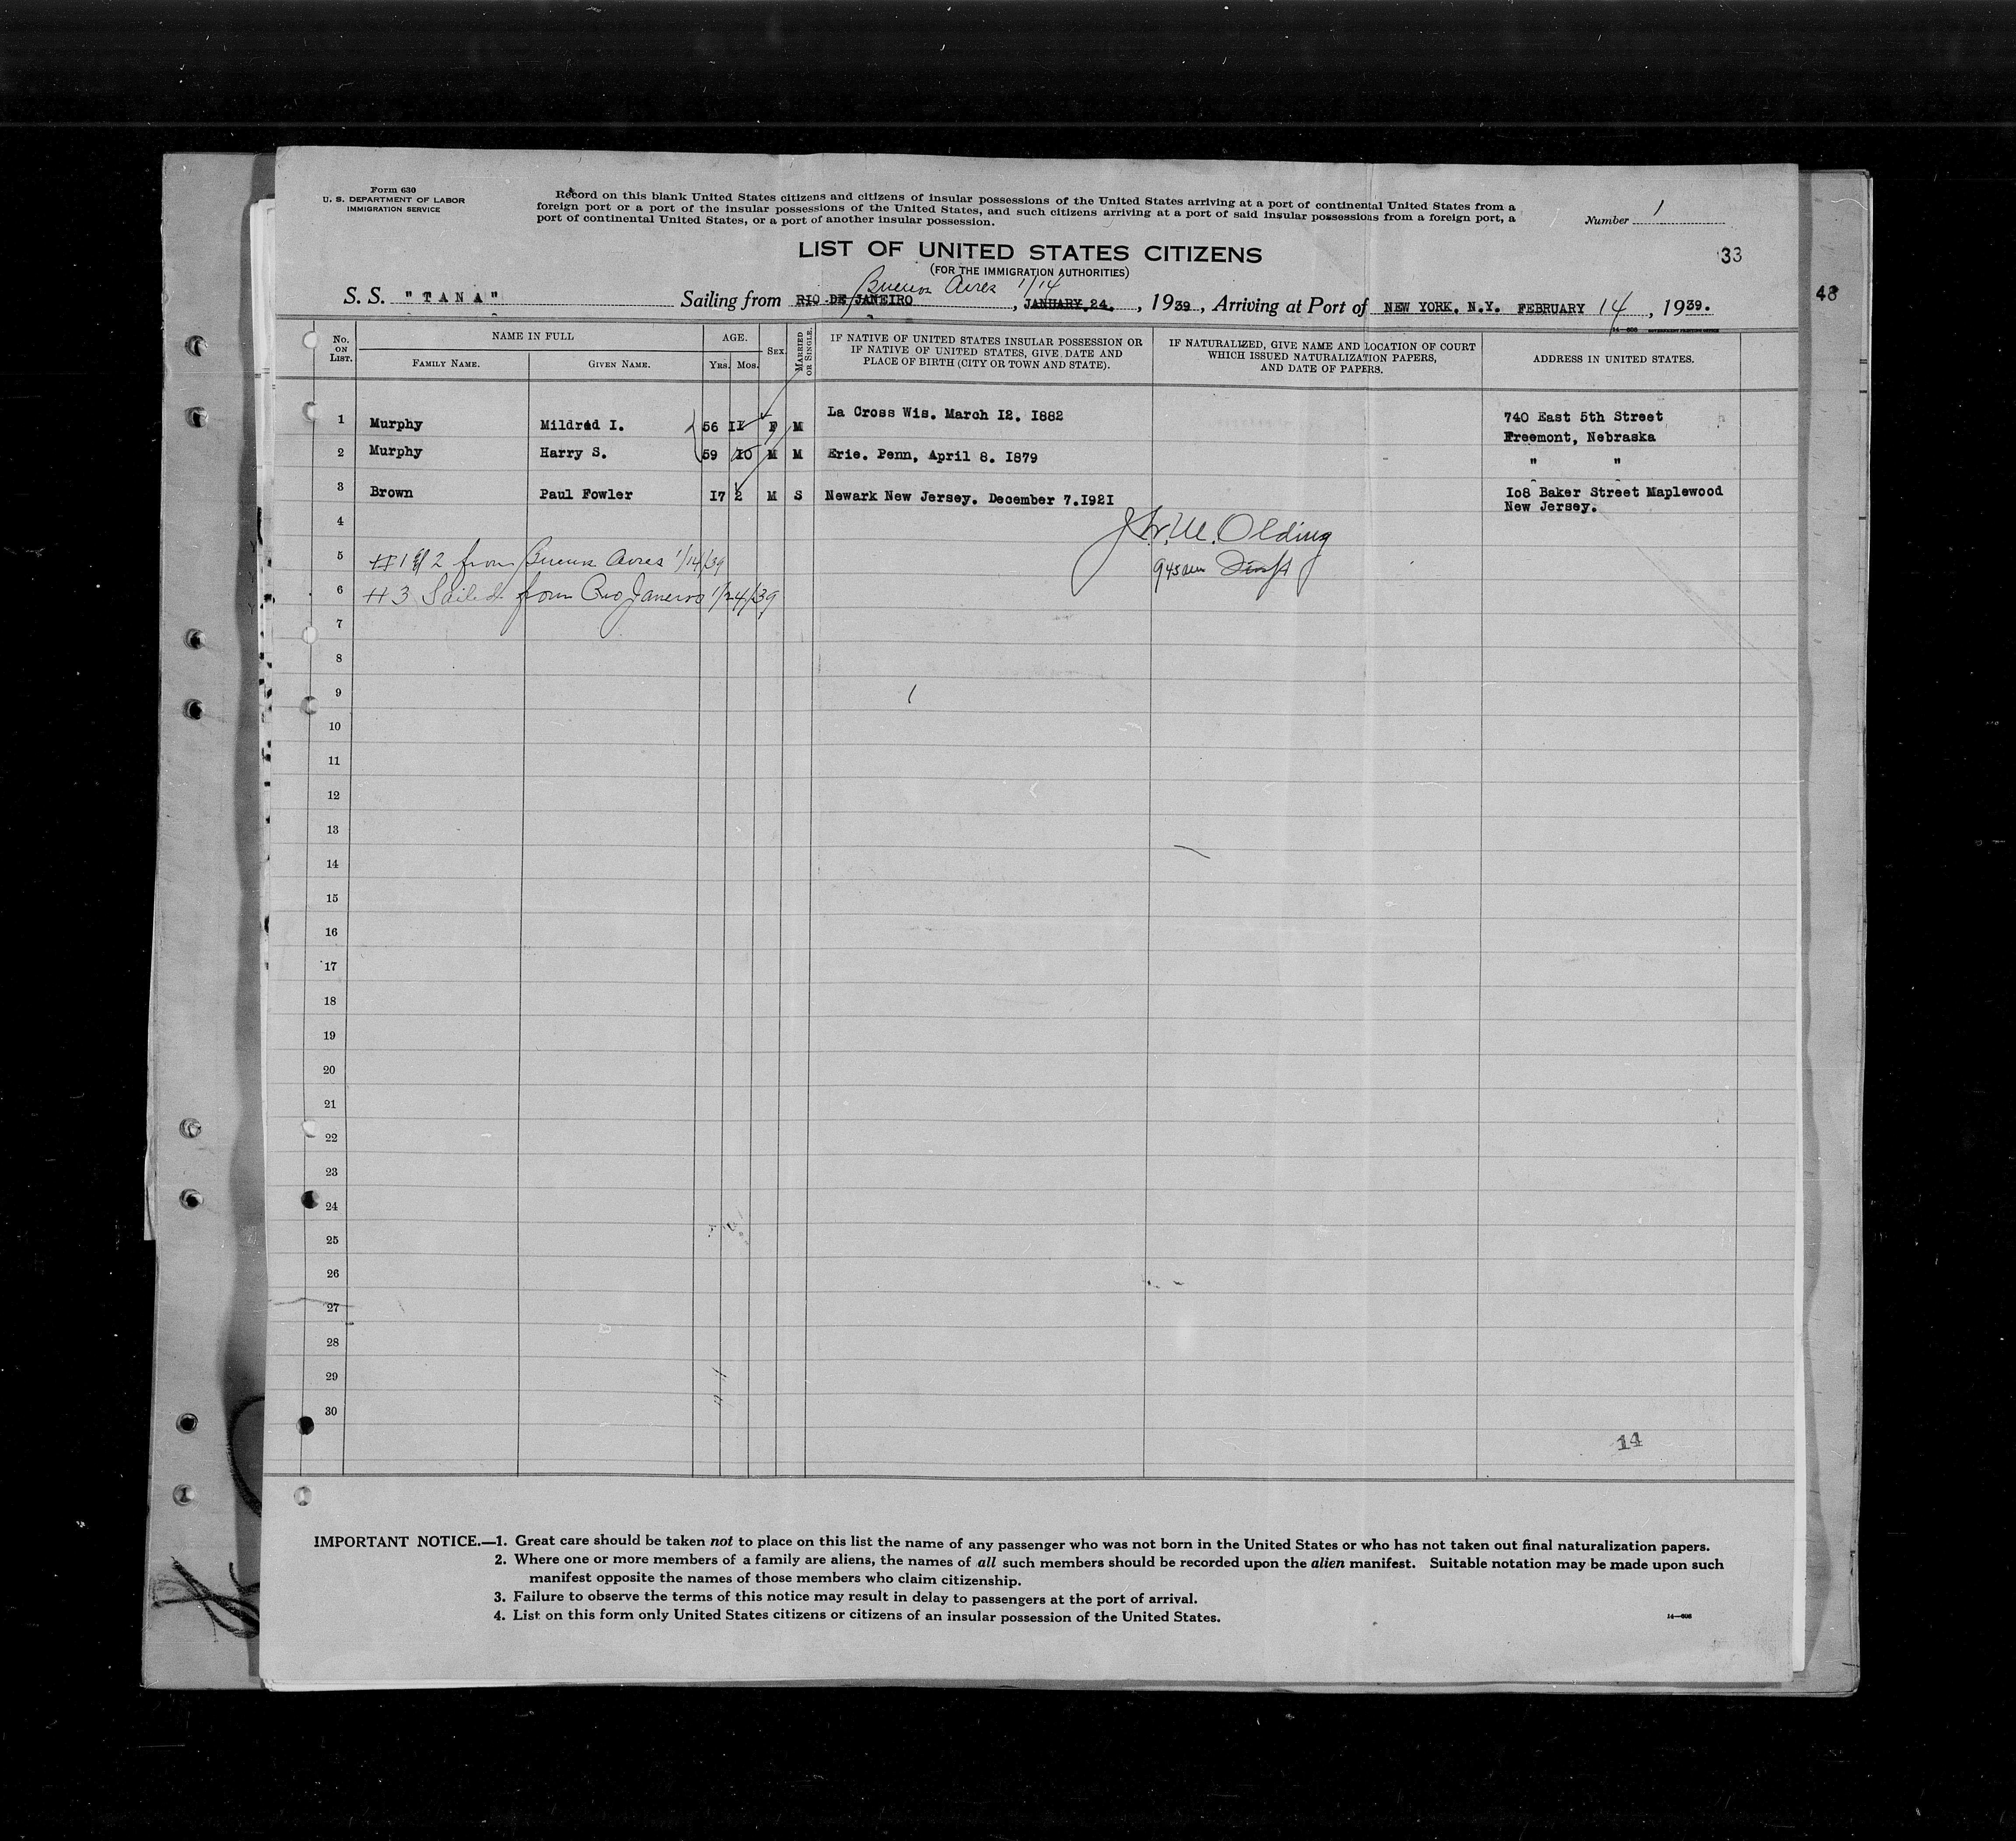 Form 630
U. S. DEPARTMENT OF LABOR
IMMIGRATION SERVICE
Record on this blank United States citizens and citizens of insular possessions of the United States arriving at a port of continental United States from a
foreign port or a port of the insular possessions of the United States, and such citizens arriving at a port of said insular possessions from a foreign port, a
port of continental United States, or a port of another insular possession.
Number 1
LIST OF UNITED STATES CITIZENS
33
(FOR THE IMMIGRATION AUTHORITIES)
Buenos Aires 1/14
S. S. "TANA" Sailing from RIO DE JANEIRO, JANUARY 24., 1939, Arriving at Port of NEW YORK. N.Y. FEBRUARY 14, 1939.
48
No. ON LIST.
NAME IN FULL
FAMILY NAME.
GIVEN NAME.
AGE.
YRS. MOS.
SEX.
MARRIED OR SINGLE.
IF NATIVE OF UNITED STATES INSULAR POSSESSION OR
IF NATIVE OF UNITED STATES, GIVE DATE AND
PLACE OF BIRTH (CITY OR TOWN AND STATE).
IF NATURALIZED, GIVE NAME AND LOCATION OF COURT
WHICH ISSUED NATURALIZATION PAPERS,
AND DATE OF PAPERS.
ADDRESS IN UNITED STATES.
1 Murphy Mildred I. 56 II F M La Cross Wis. March I2. I882 740 East 5th Street
Freemont, Nebraska
2 Murphy Harry S. 59 IO M M Erie. Penn, April 8. I879 " "
3 Brown Paul Fowler I7 2 M S Newark New Jersey. December 7.I92I Io8 Baker Street Maplewood
New Jersey.
4
Olding
5 #1 & 2 from Buenos Aires 1/14/39
945 am
6 #3 Sailed from Rio Janeiro 1/24/39
7
8
9
10
11
12
13
14
15
16
17
18
19
20
21
22
23
24
25
26
27
28
29
30
14
IMPORTANT NOTICE.—1. Great care should be taken not to place on this list the name of any passenger who was not born in the United States or who has not taken out final naturalization papers.
2. Where one or more members of a family are aliens, the names of all such members should be recorded upon the alien manifest. Suitable notation may be made upon such
manifest opposite the names of those members who claim citizenship.
3. Failure to observe the terms of this notice may result in delay to passengers at the port of arrival.
4. List on this form only United States citizens or citizens of an insular possession of the United States.